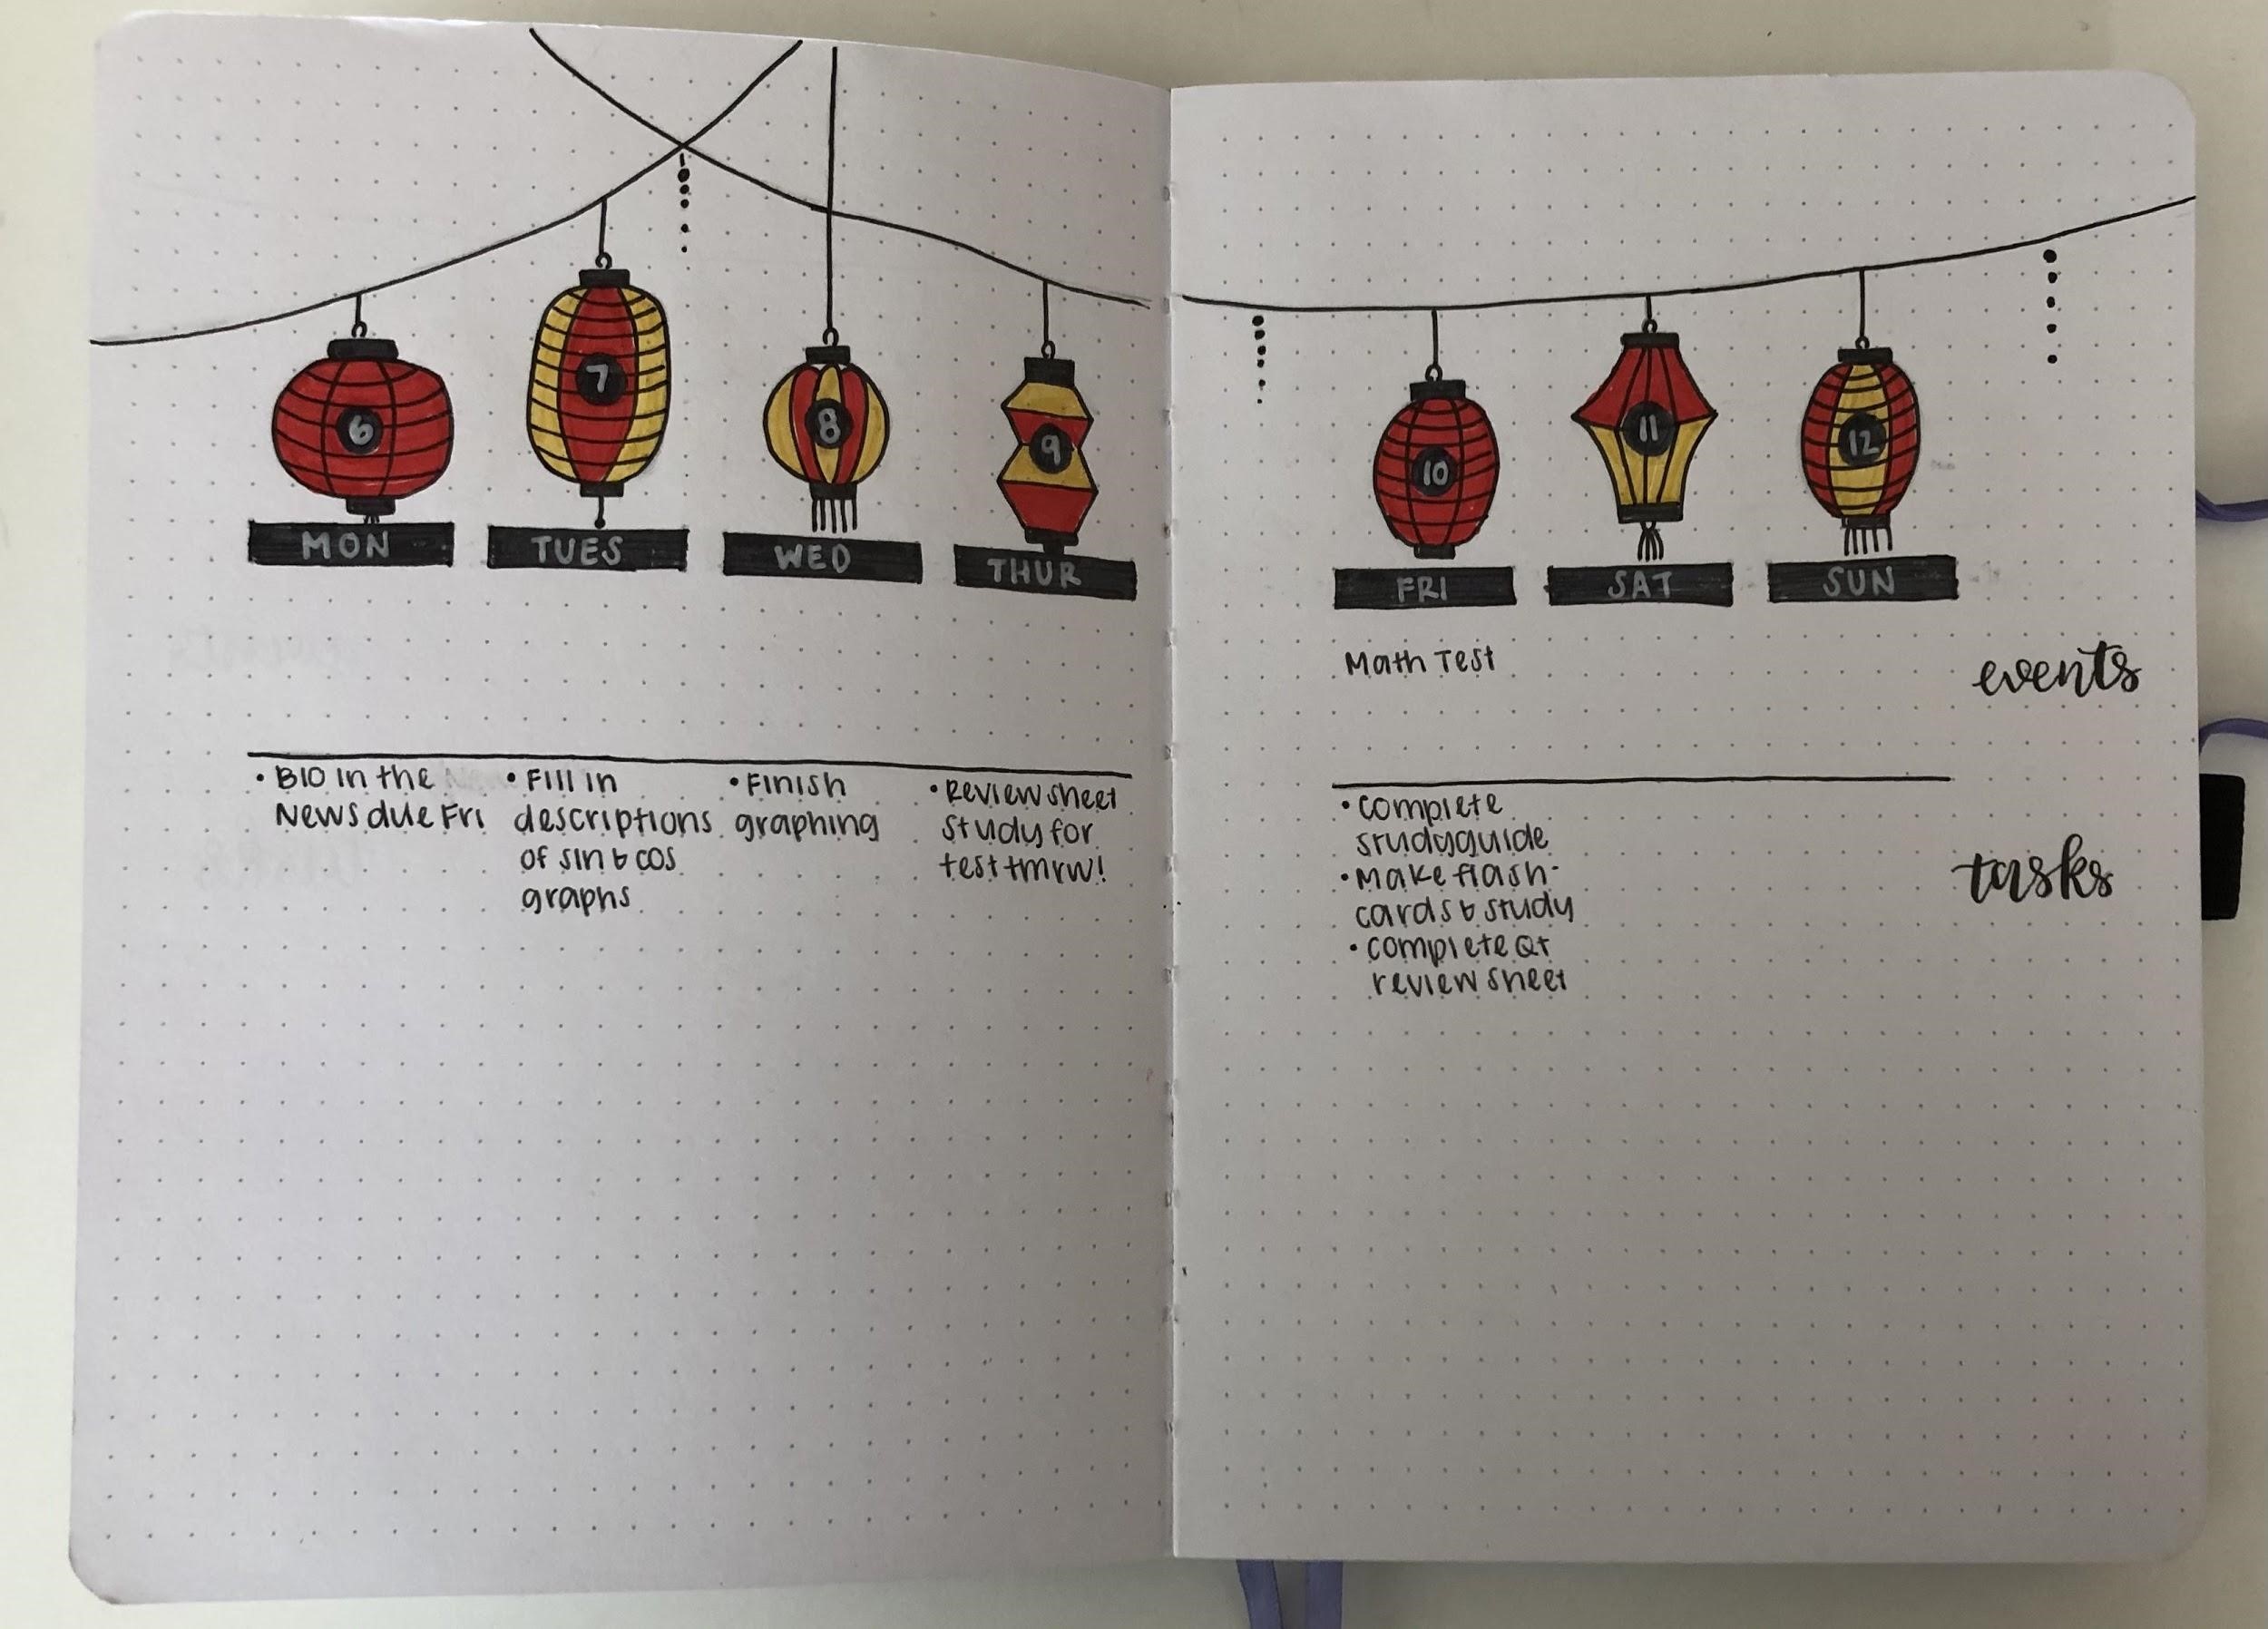 6
7
8
9
10
11
12
MON
TUES
WED
THUR
FRI
SAT
SUN
Math Test
events
• BIO in the
News due Fri
• Fill in
descriptions
of sin & cos
graphs
• Finish
graphing
• Review sheet
study for
test tmrw!
• complete
studyguide
• Make flash-
cards & study
• complete QT
review sheet
tasks